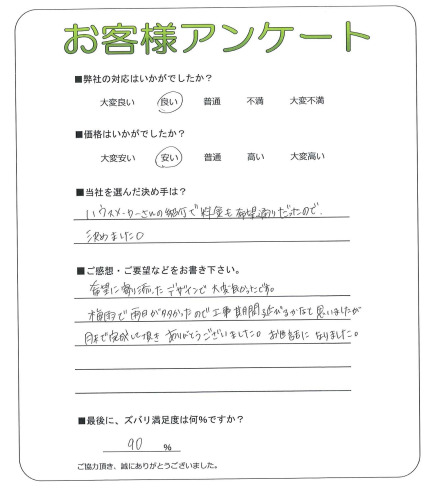 お客様アンケート
■弊社の対応はいかがでしたか?
大変良い 良い 普通 不満 大変不満
■価格はいかがでしたか?
大変安い 安い 普通 高い 大変高い
■当社を選んだ決め手は?
ハウスメーカーさんの紹介で料金も希望通りだったので、
決めました。
■ご感想・ご要望などをお書き下さい。
希望に寄り添ったデザインで大変良かったです。
梅雨で雨日が多かったので工事期間延びるかなと思いましたが
月まで完成して頂きありがとうございました。お世話になりました。
■最後に、ズバリ満足度は何%ですか?
90 %
ご協力頂き、誠にありがとうございました。